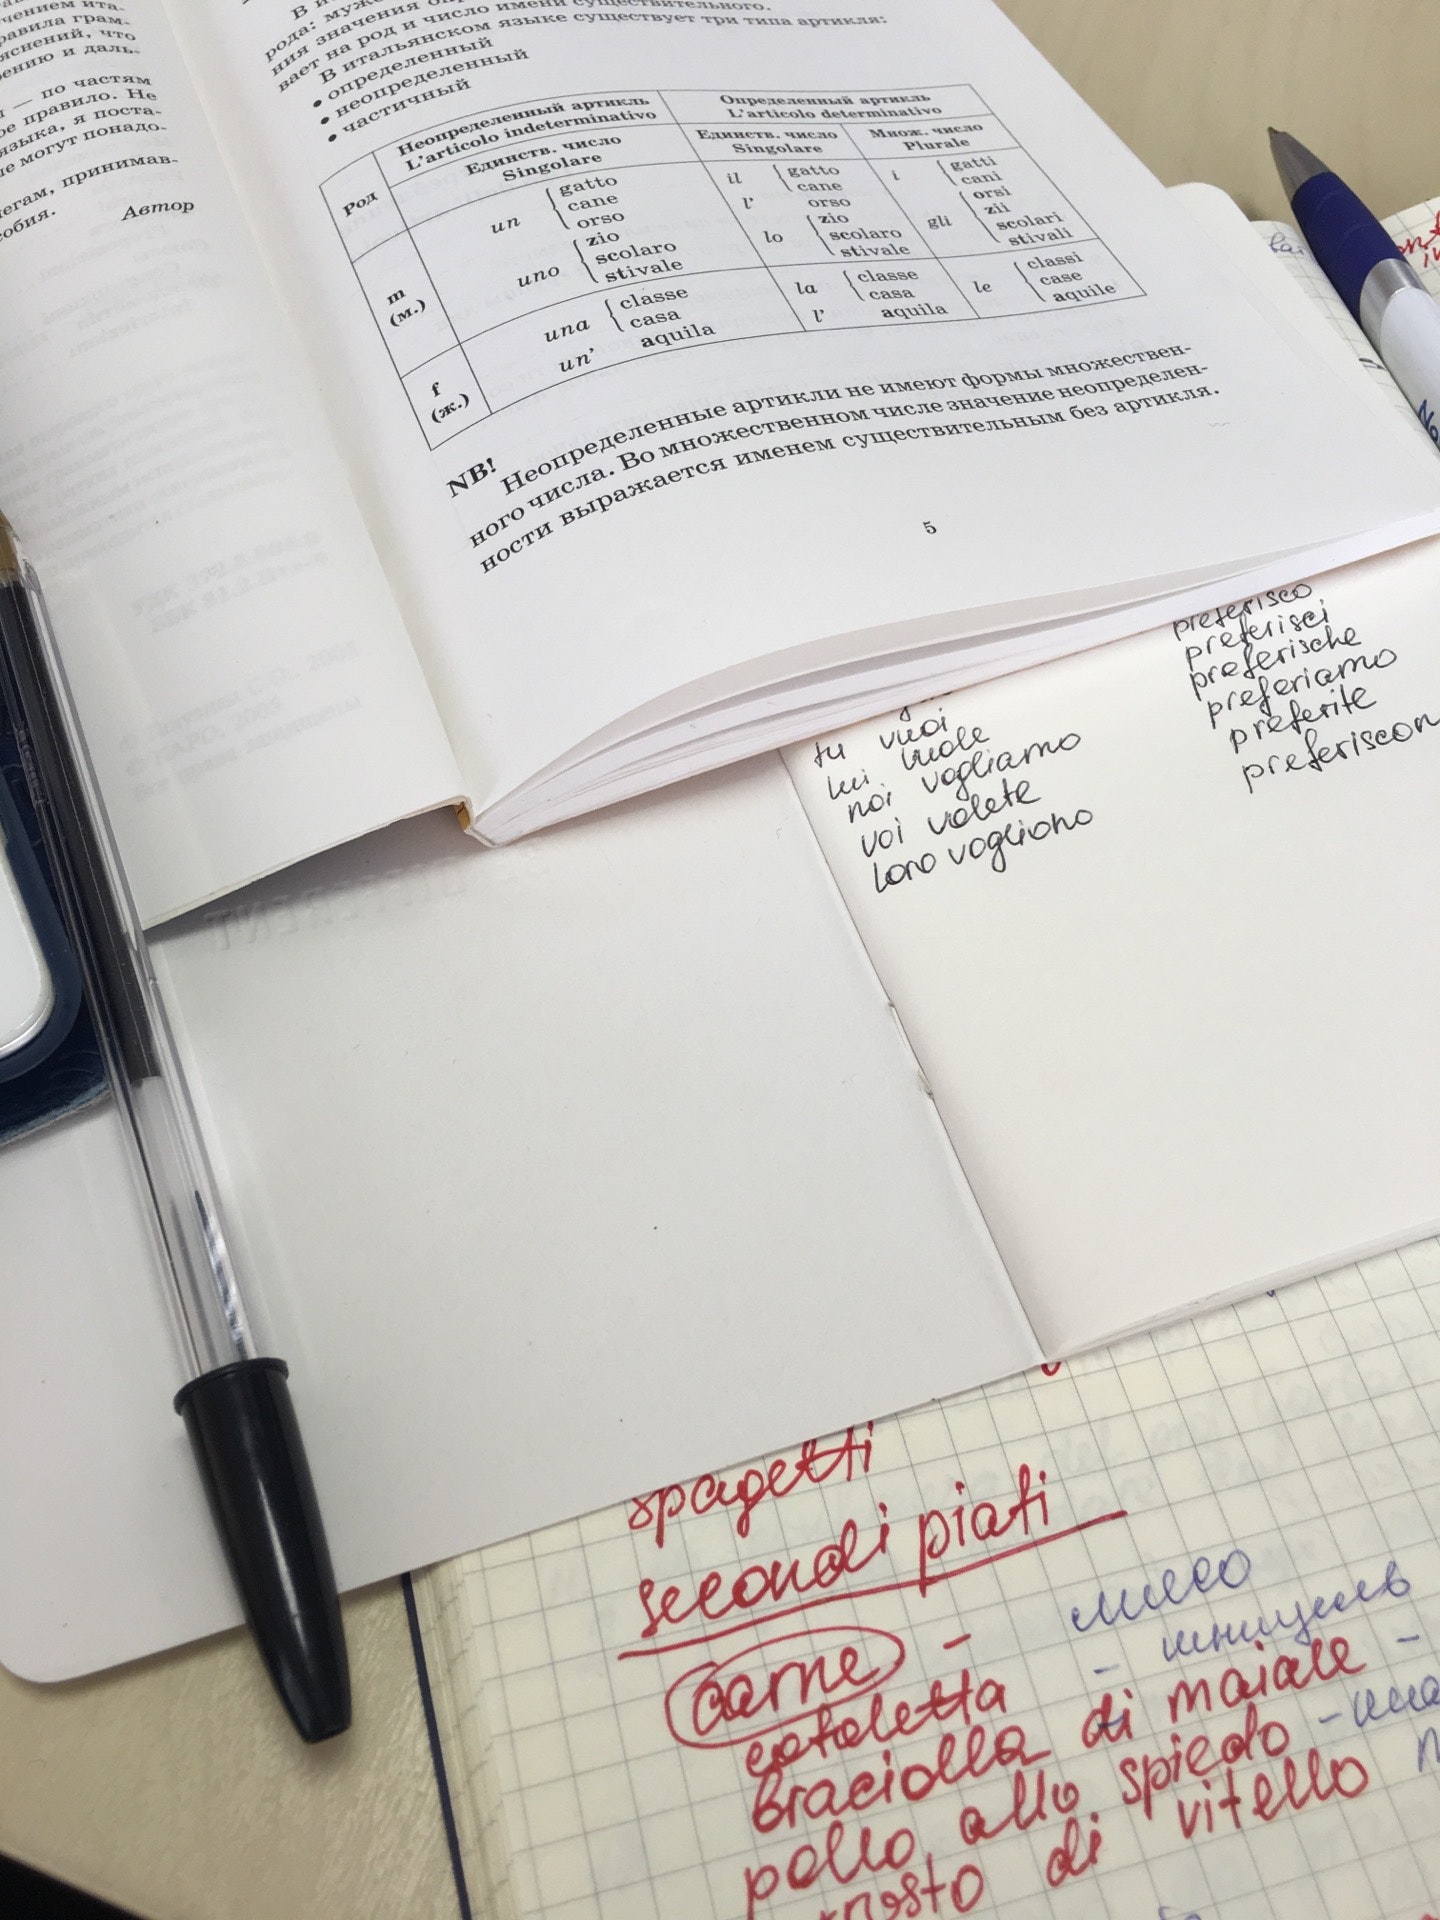 чением ита-
равила грам-
яснений, что
ению и даль-
— по частям
ое правило. Не
языка, я поста-
не могут понадо-
легам, принимав-
собия.
Автор
рода:
ния значения
вает на род и число имени существительного.
В итальянском языке существует три типа артикля:
• определенный
• неопределенный
• частичный
Род
Неопределенный артикль
L'articolo indeterminativo
Определенный артикль
L'articolo determinativo
Единств. число
Singolare
Единств. число
Singolare
Множ. число
Plurale
m
(м.)
un { gatto
cane
orso
uno { zio
scolaro
stivale
il { gatto
cane
l' orso
lo { zio
scolaro
stivale
i { gatti
cani
gli { orsi
zii
scolari
stivali
f
(ж.)
una { classe
casa
un' aquila
la { classe
casa
l' aquila
le { classi
case
aquile
NB!
Неопределенные артикли не имеют формы множествен-
ного числа. Во множественном числе значение неопределен-
ности выражается именем существительным без артикля.
5
tu vuoi
lui vuole
noi vogliamo
voi volete
loro vogliono
preferisco
preferisci
preferische
preferiamo
preferite
preferiscon
spagetti
secondi piati
carne - мясо
cotoletta - шницель
braciolla di maiale -
pollo allo spiedo -
di vitello